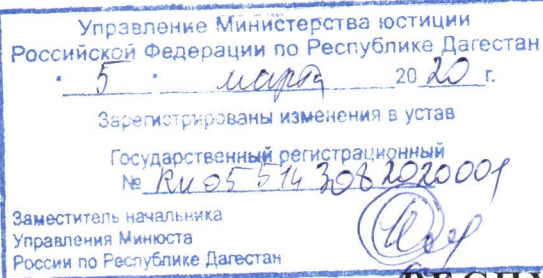 Управление Министерства юстиции
Российской Федерации по Республике Дагестан
" 5 " марта 20 20 г.
Зарегистрированы изменения в устав
Государственный регистрационный
№ RU 05 514 308 2020001
Заместитель начальника
Управления Минюста
России по Республике Дагестан